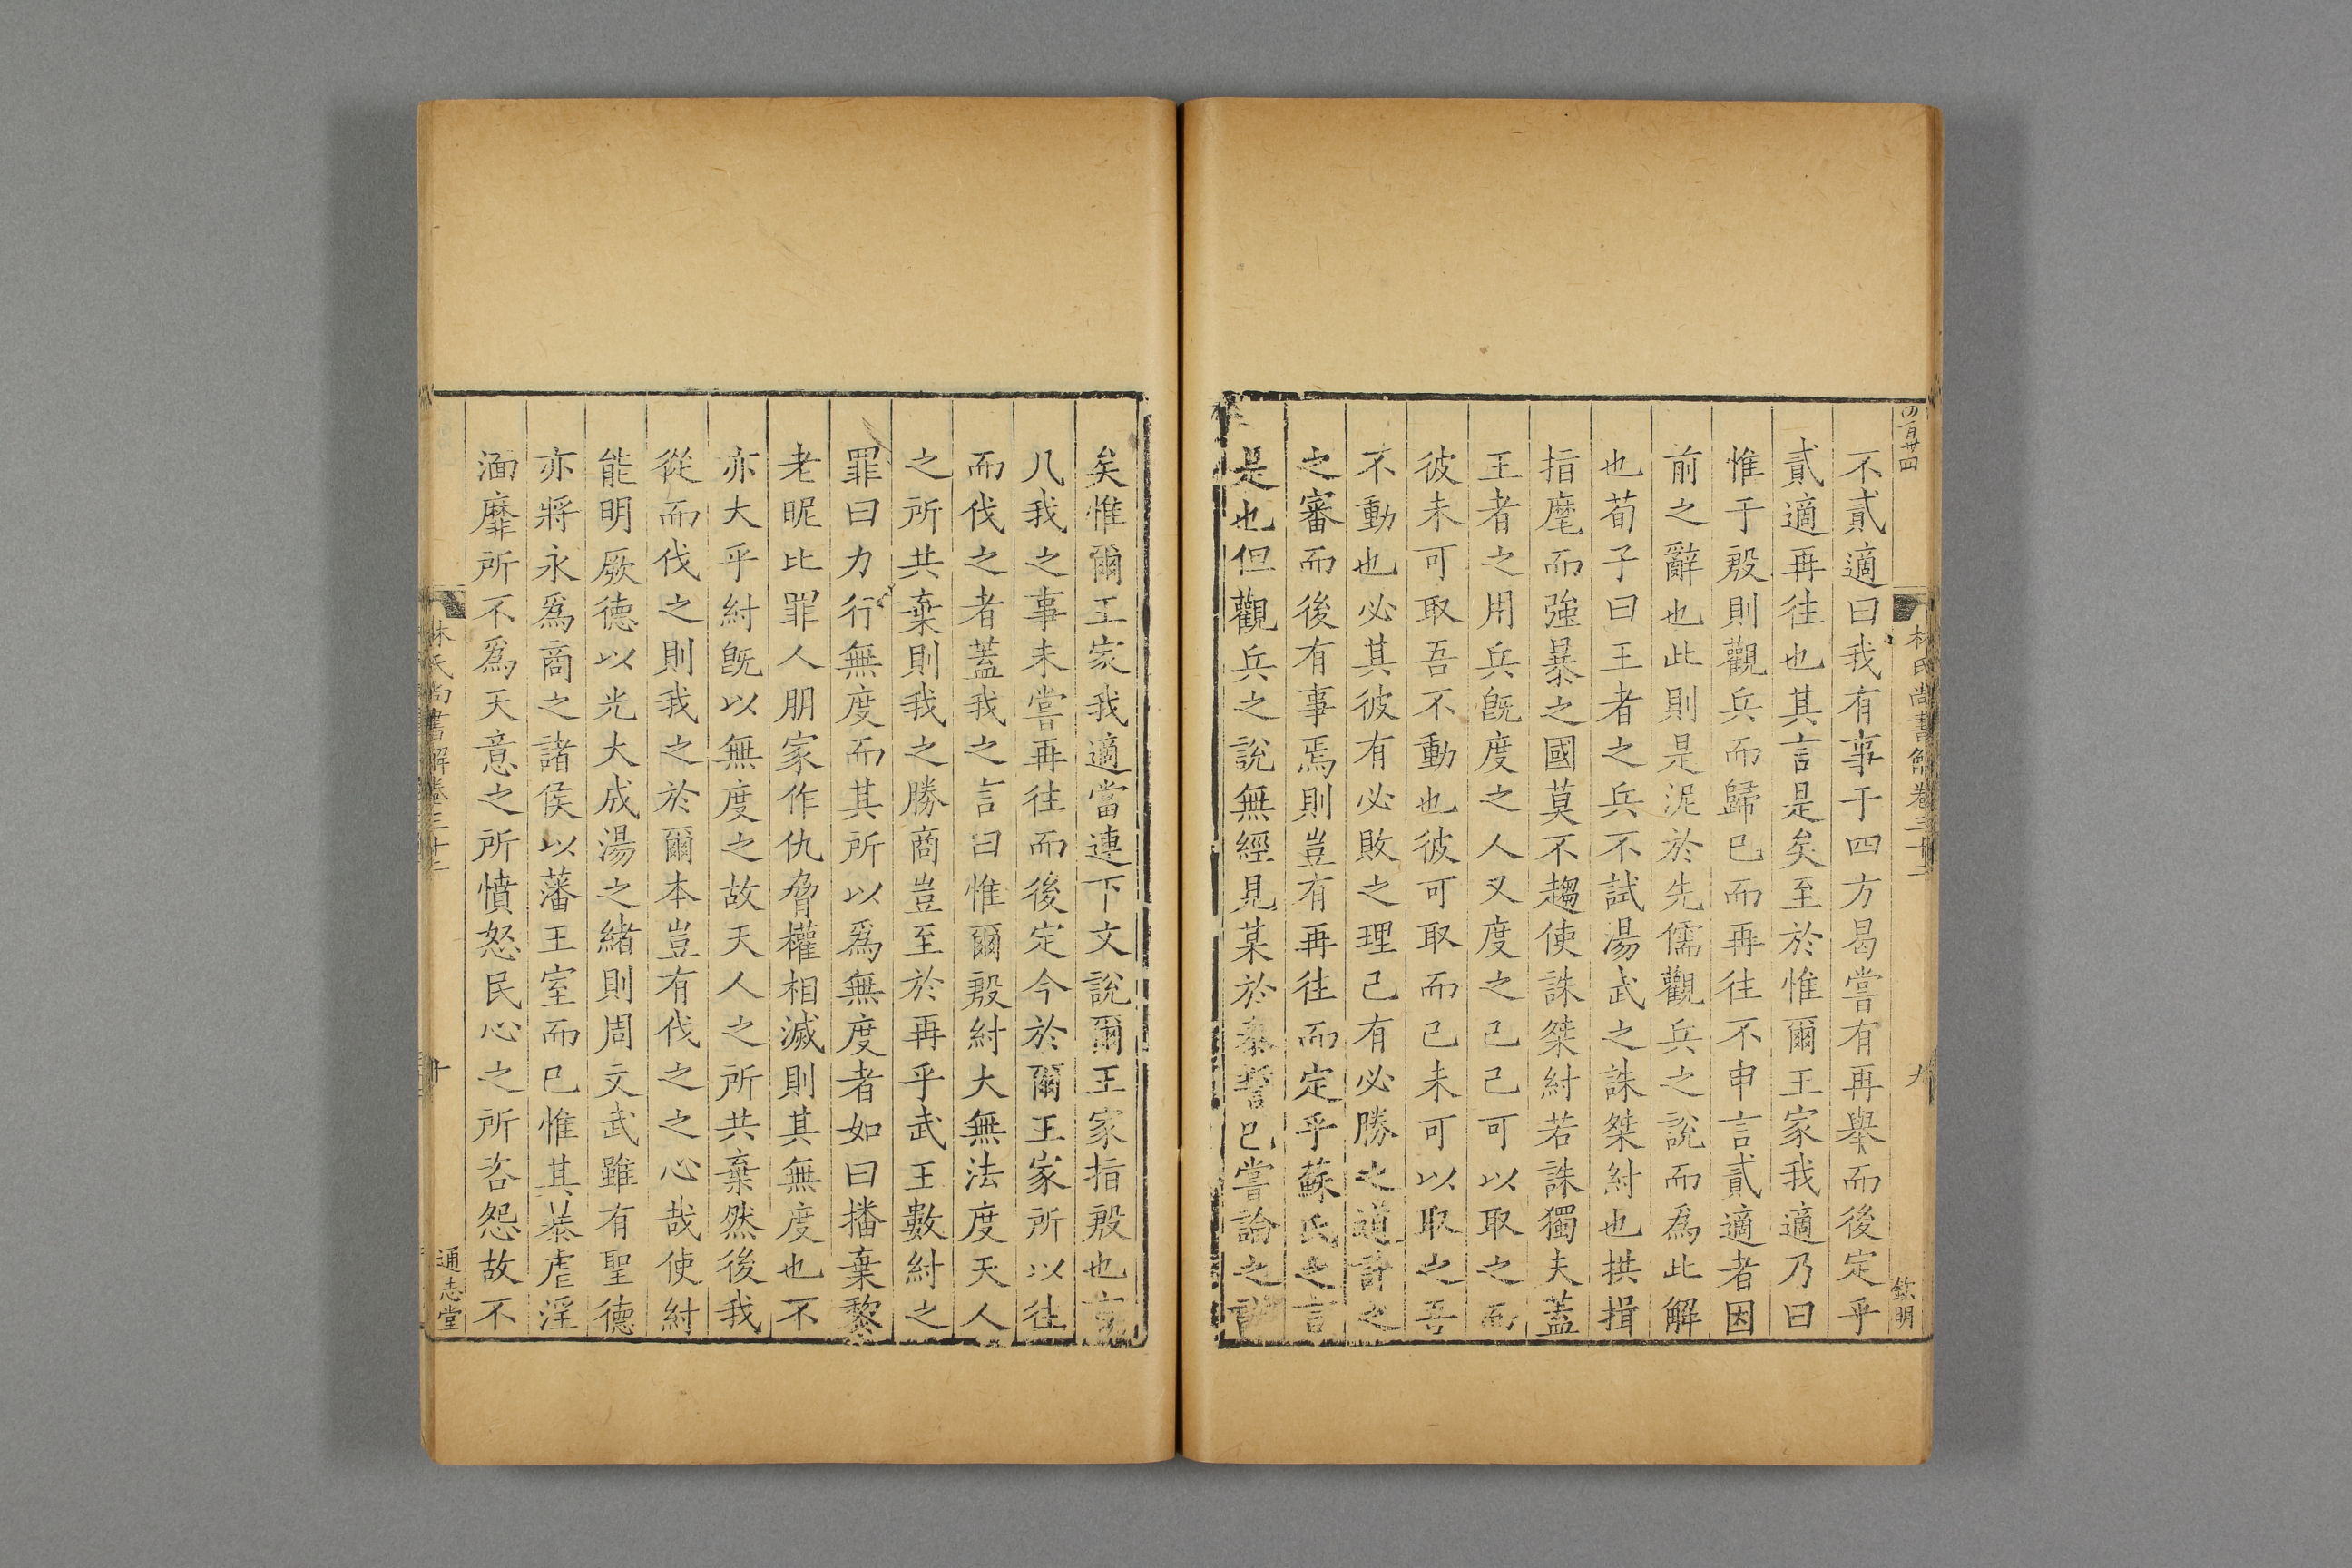 林氏尚書解卷三十二
九
欽明
不貳適曰我有事于四方曷嘗有再舉而後定乎
貳適再往也其言是矣至於惟爾王家我適乃曰
惟于殷則觀兵而歸已而再往不申言貳適者因
前之辭也此則是泥於先儒觀兵之說而為此解
也荀子曰王者之兵不試湯武之誅桀紂也拱揖
指麾而強暴之國莫不趨使誅桀紂若誅獨夫蓋
王者之用兵既度之人又度之己己可以取之而
彼未可取吾不動也彼可取而己未可以取之吾
不動也必其彼有必敗之理己有必勝之道計之
之審而後有事焉則豈有再往而定乎蘇氏之言
是也但觀兵之說無經見某於泰誓已嘗論之詳
矣惟爾王家我適當連下文說爾王家指殷也言
八我之事未嘗再往而後定今於爾王家所以往
而伐之者蓋我之言曰惟爾殷紂大無法度天人
之所共棄則我之勝商豈至於再乎武王數紂之
罪曰力行無度而其所以爲無度者如曰播棄黎
老昵比罪人朋家作仇脅權相滅則其無度也不
亦大乎紂既以無度之故天人之所共棄然後我
從而伐之則我之於爾本豈有伐之之心哉使紂
能明厥德以光大成湯之緒則周文武雖有聖德
亦將永爲商之諸侯以藩王室而已惟其暴虐淫
湎靡所不爲天意之所憤怒民心之所咨怨故不
林氏尚書解卷三十二
十
通志堂